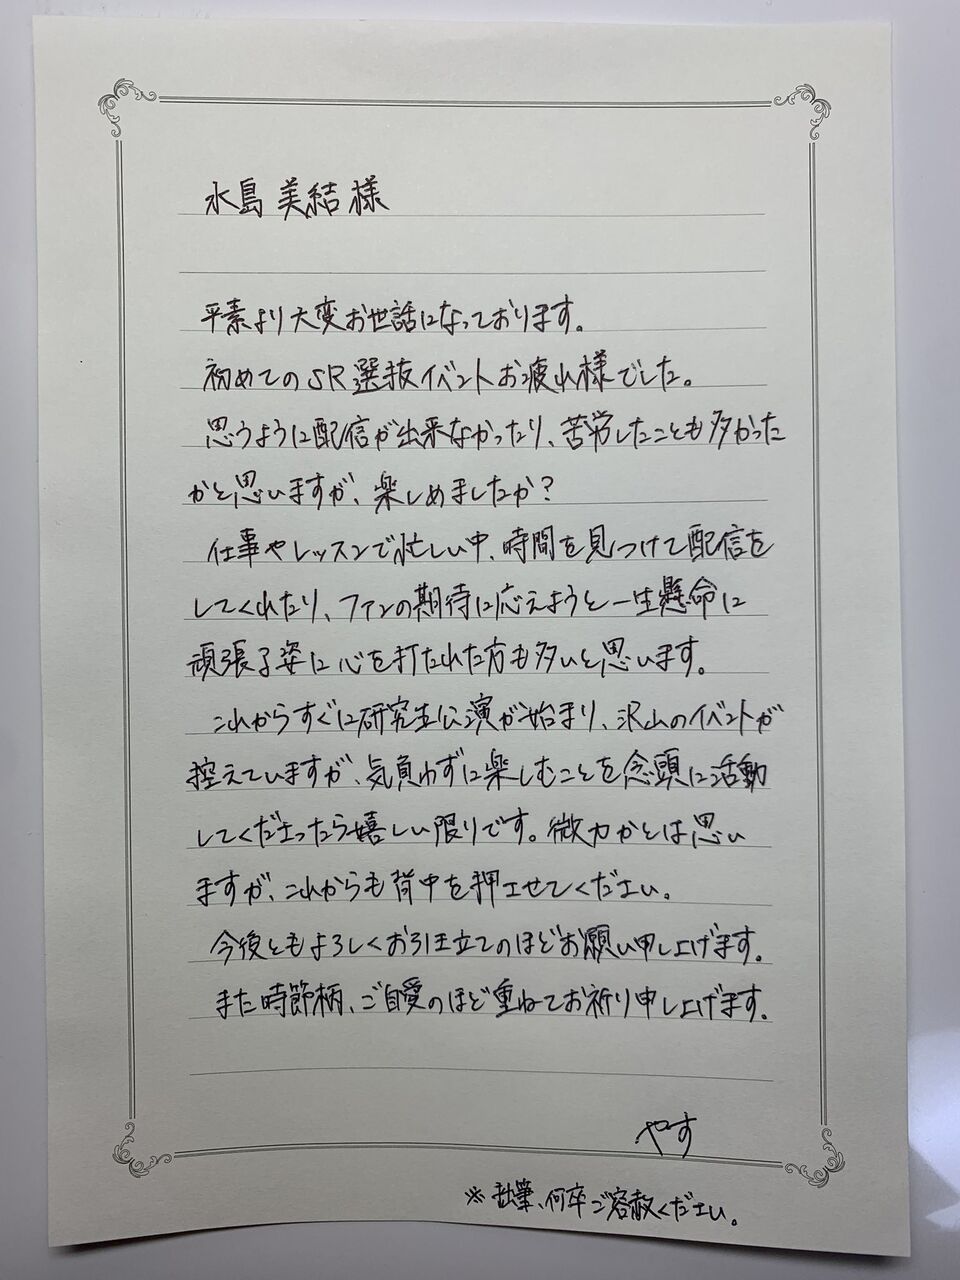 水島 美結 様
平素より大変お世話になっております。
初めてのSR選抜イベントお疲れ様でした。
思うように配信が出来なかったり、苦労したことも多かった
かと思いますが、楽しめましたか?
仕事やレッスンで忙しい中、時間を見つけて配信を
してくれたり、ファンの期待に応えようと一生懸命に
頑張る姿に心を打たれた方も多いと思います。
これからすぐに研究生公演が始まり、沢山のイベントが
控えていますが、気負わずに楽しむことを念頭に活動
してくださったら嬉しい限りです。微力かとは思い
ますが、これからも背中を押させてください。
今後ともよろしくお引き立てのほどお願い申し上げます。
また時節柄、ご自愛のほど重ねてお祈り申し上げます。
やす
※乱筆、何卒ご容赦ください。